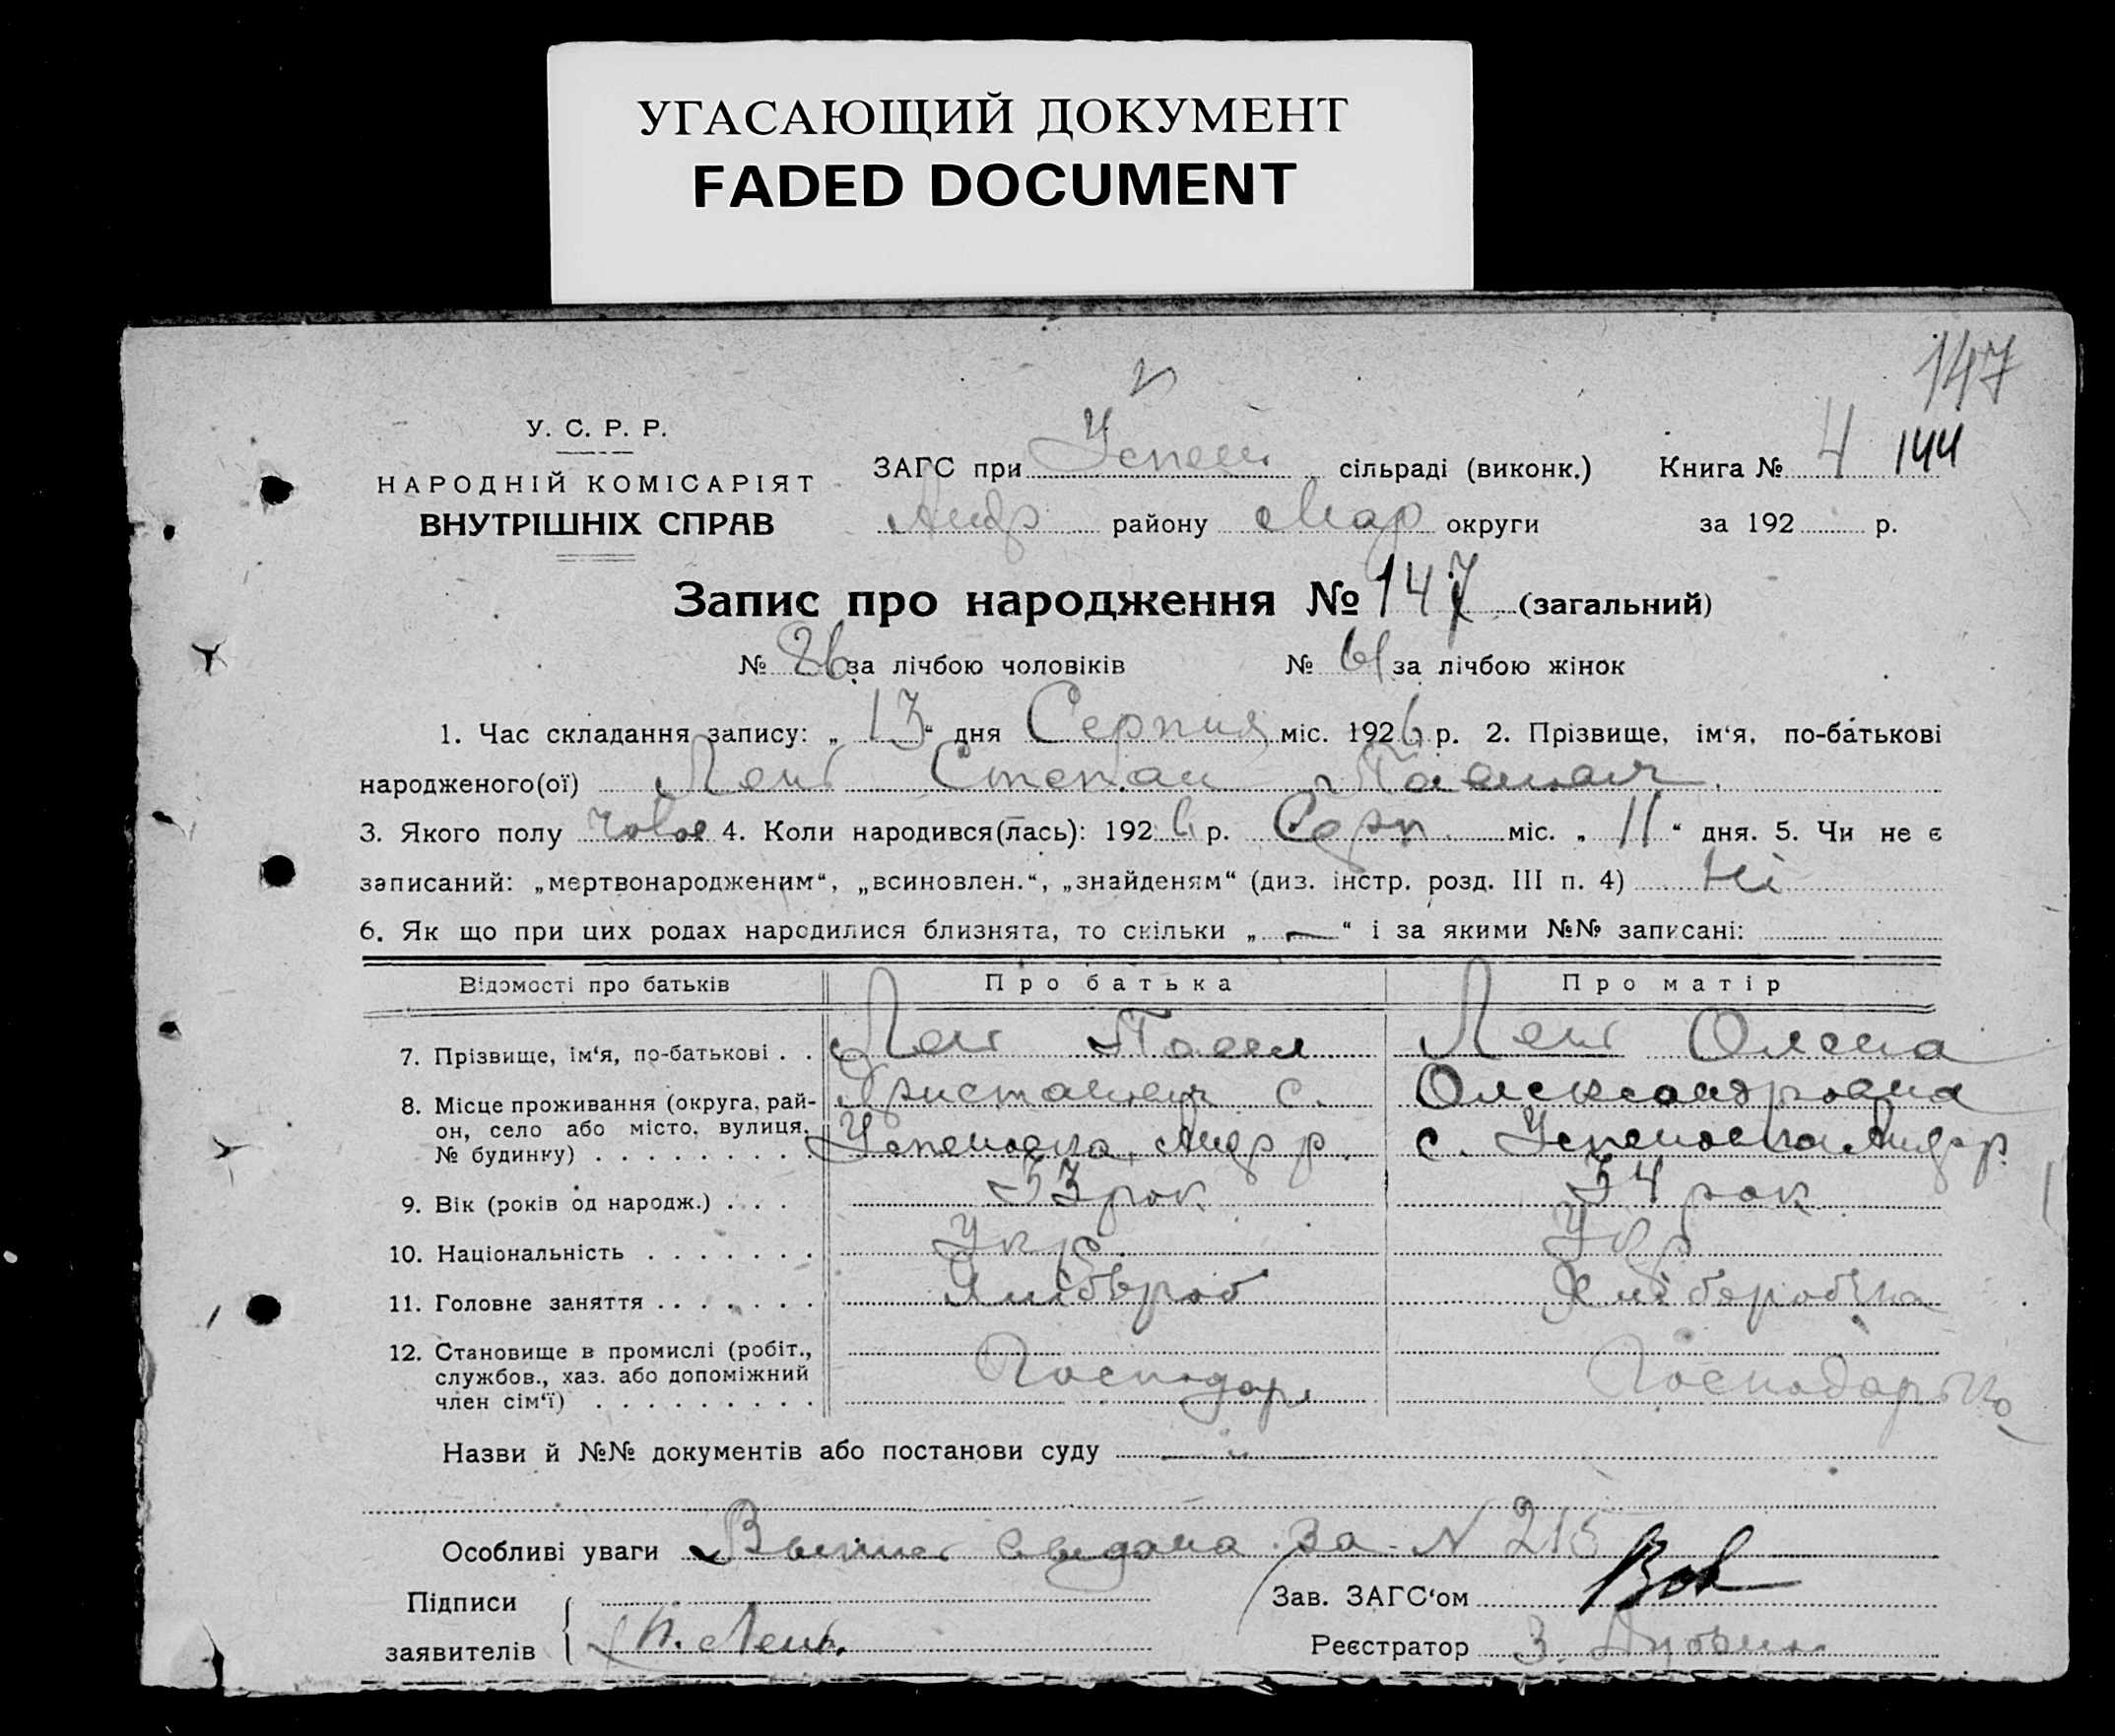 УГАСАЮЩИЙ ДОКУМЕНТ
FADED DOCUMENT
147
У. С. Р. Р.
НАРОДНІЙ КОМІСАРІЯТ
ВНУТРІШНІХ СПРАВ
ЗАГС при Успен. сільраді (виконк.) Книга № 4 144
Андр району Мар округи за 192 р.
Запис про народження № 147 (загальний)
№ 86 за лічбою чоловіків № 61 за лічбою жінок
1. Час складання запису: „ 13 “ дня Серпня міс. 1926 р. 2. Прізвище, ім‘я, по-батькові
народженого(ої) Лень Степан Павлович.
3. Якого полу чолов 4. Коли народився(лась): 1926 р. Серп міс. „ 11 “ дня. 5. Чи не є
записаний: „мертвонародженим“, „всиновлен.“, „знайденям“ (диз. інстр. розд. III п. 4) Ні
6. Як що при цих родах народилися близнята, то скільки „ — “ і за якими №№ записані:
Відомості про батьків Про батька Про матір
7. Прізвище, ім‘я, по-батькові . . Лень Павел Лень Олена
8. Місце проживання (округа, рай- с. Олександровна
он, село або місто, вулиця, Успеновка, Андр р. с. Успеновка Андр р.
№ будинку) . . . . . . . . .
9. Вік (років од народж.) . . . 33 рок 34 рок
10. Національність . . . . . . . Укр. Укр
11. Головне заняття . . . . . . . Хлібороб Хліборобка
12. Становище в промислі (робіт.,
службов., хаз. або допоміжний Господар Господарька
член сім‘ї) . . . . . . . . .
Назви й №№ документів або постанови суду
Особливі уваги за N 215
Підписи Зав. ЗАГС‘ом
заявителів П. Лень. Реєстратор З.